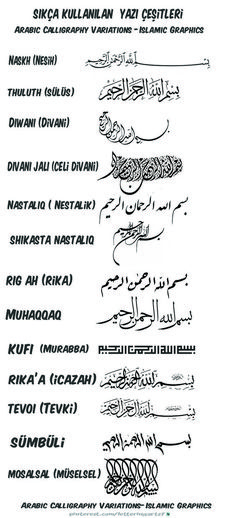 SIKÇA KULLANILAN YAZI ÇEŞİTLERİ
ARABIC CALLIGRAPHY VARIATIONS - ISLAMIC GRAPHICS
NASKH (NESİH) بسم الله الرحمن الرحيم
THULUTH (SÜLÜS) بسم الله الرحمن الرحيم
DIWANI (DİVANİ) بسم الله الرحمن الرحيم
DIVANI JALI (CELİ DİVANİ) بسم الله الرحمن الرحيم
NASTALIQ ( NESTALİK) بسم الله الرحمان الرحيم
SHIKASTA NASTALIQ بسم الله الرحمن الرحيم
RIG AH (RİKA) بسم الله الرحمن الرحيم
MUHAQQAQ بسم الله الرحمن الرحيم
KUFI (MURABBA) بسم الله الرحمن الرحيم
RIKA'A (İCAZAH) بسم الله الرحمن الرحيم
TEVOI (TEVKİ) بسم الله الرحمن الرحيم
SÜMBÜLİ بسم الله الرحمن الرحيم
MOSALSAL (MÜSELSEL) بسم الله الرحمن الرحيم
ARABIC CALLIGRAPHY VARIATIONS- ISLAMIC GRAPHICS